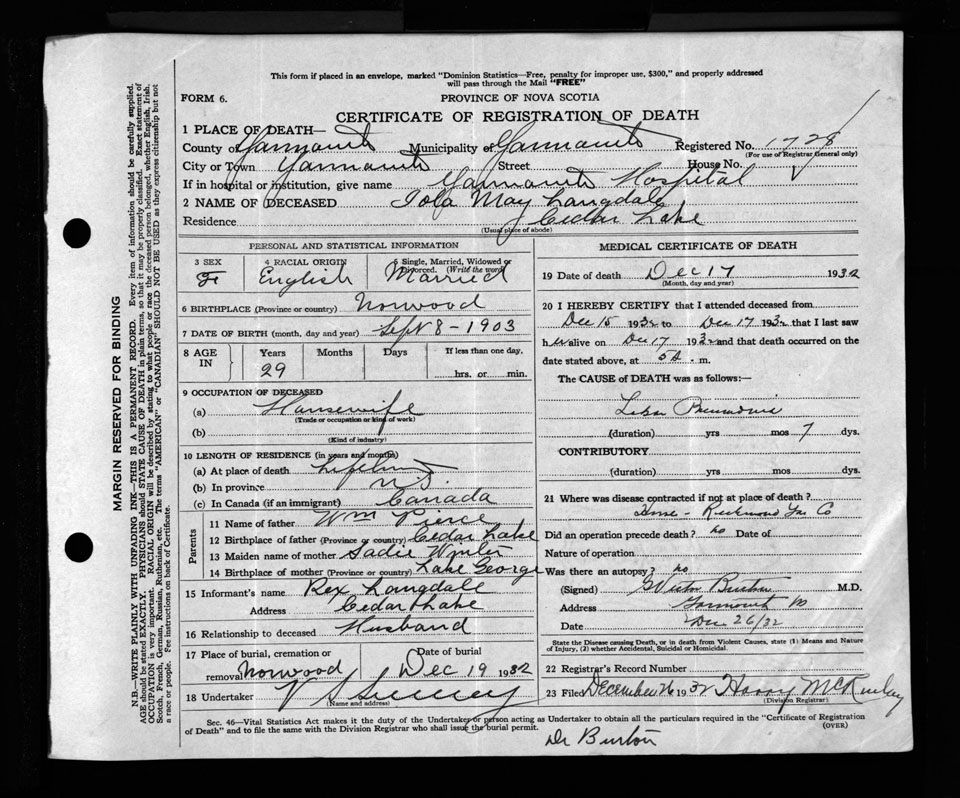 This form if placed in an envelope, marked "Dominion Statistics—Free, penalty for improper use, $300," and properly addressed
will pass through the Mail "FREE"
FORM 6.
PROVINCE OF NOVA SCOTIA
CERTIFICATE OF REGISTRATION OF DEATH
1 PLACE OF DEATH—
County of Yarmouth Municipality of Yarmouth Registered No. 1728
(For use of Registrar General only)
City or Town Yarmouth Street House No.
If in hospital or institution, give name Yarmouth Hospital
2 NAME OF DECEASED Iola May Langdale
Residence Cedar Lake
(Usual place of abode)
PERSONAL AND STATISTICAL INFORMATION
3 SEX 4 RACIAL ORIGIN 5 Single, Married, Widowed or Divorced. (Write the word)
F English Married
6 BIRTHPLACE (Province or country) Norwood
7 DATE OF BIRTH (month, day and year) Sept 8 - 1903
8 AGE IN Years Months Days If less than one day,
29 hrs. or min.
9 OCCUPATION OF DECEASED
(a) Housewife
(Trade or occupation or kind of work)
(b)
(Kind of industry)
10 LENGTH OF RESIDENCE (in years and months)
(a) At place of death Lifetime
(b) In province N.S.
(c) In Canada (if an immigrant) Canada
Parents
11 Name of father Wm Pierce
12 Birthplace of father (Province or country) Cedar Lake
13 Maiden name of mother Sadie Winter
14 Birthplace of mother (Province or country) Lake George
15 Informant's name Rex Langdale
Address Cedar Lake
16 Relationship to deceased Husband
17 Place of burial, cremation or removal Norwood Date of burial Dec 19 1932
18 Undertaker V S Sweeney
(Name and address)
MEDICAL CERTIFICATE OF DEATH
19 Date of death Dec 17 1932
(Month, day and year)
20 I HEREBY CERTIFY that I attended deceased from
Dec 15 1932 to Dec 17 1932 that I last saw
her alive on Dec 17 1932 and that death occurred on the
date stated above, at 5 A. m.
The CAUSE of DEATH was as follows:—
Lobar Pneumonia
(duration) yrs mos 7 dys.
CONTRIBUTORY
(duration) yrs. mos. dys.
21 Where was disease contracted if not at place of death?
Home -
Did an operation precede death? no Date of
Nature of operation
Was there an autopsy? no
(Signed) G Victor Burton M.D.
Address Yarmouth
Date Dec 26/32
State the Disease causing Death, or in death from Violent Causes, state (1) Means and Nature
of Injury, (2) whether Accidental, Suicidal or Homicidal.
22 Registrar's Record Number
23 Filed December 26 1932 Harry McKinlay
(Division Registrar)
Sec. 46—Vital Statistics Act makes it the duty of the Undertaker or person acting as Undertaker to obtain all the particulars required in the "Certificate of Registration
of Death" and to file the same with the Division Registrar who shall issue the burial permit.
(OVER)
Dr Burton
MARGIN RESERVED FOR BINDING
N.B.—WRITE PLAINLY WITH UNFADING INK—THIS IS A PERMANENT RECORD. Every item of information should be carefully supplied.
AGE should be stated EXACTLY. PHYSICIANS should STATE CAUSE OF DEATH in plain terms, so that it may be properly classified. Exact statement of
OCCUPATION is very important. RACIAL ORIGIN will be described by stating to what people or race the deceased person belonged, whether English, Irish,
Scotch, French, German, Russian, Ruthenian, etc. The terms "AMERICAN" or "CANADIAN" SHOULD NOT BE USED as they express citizenship but not
a race or people. See instructions on back of Certificate.